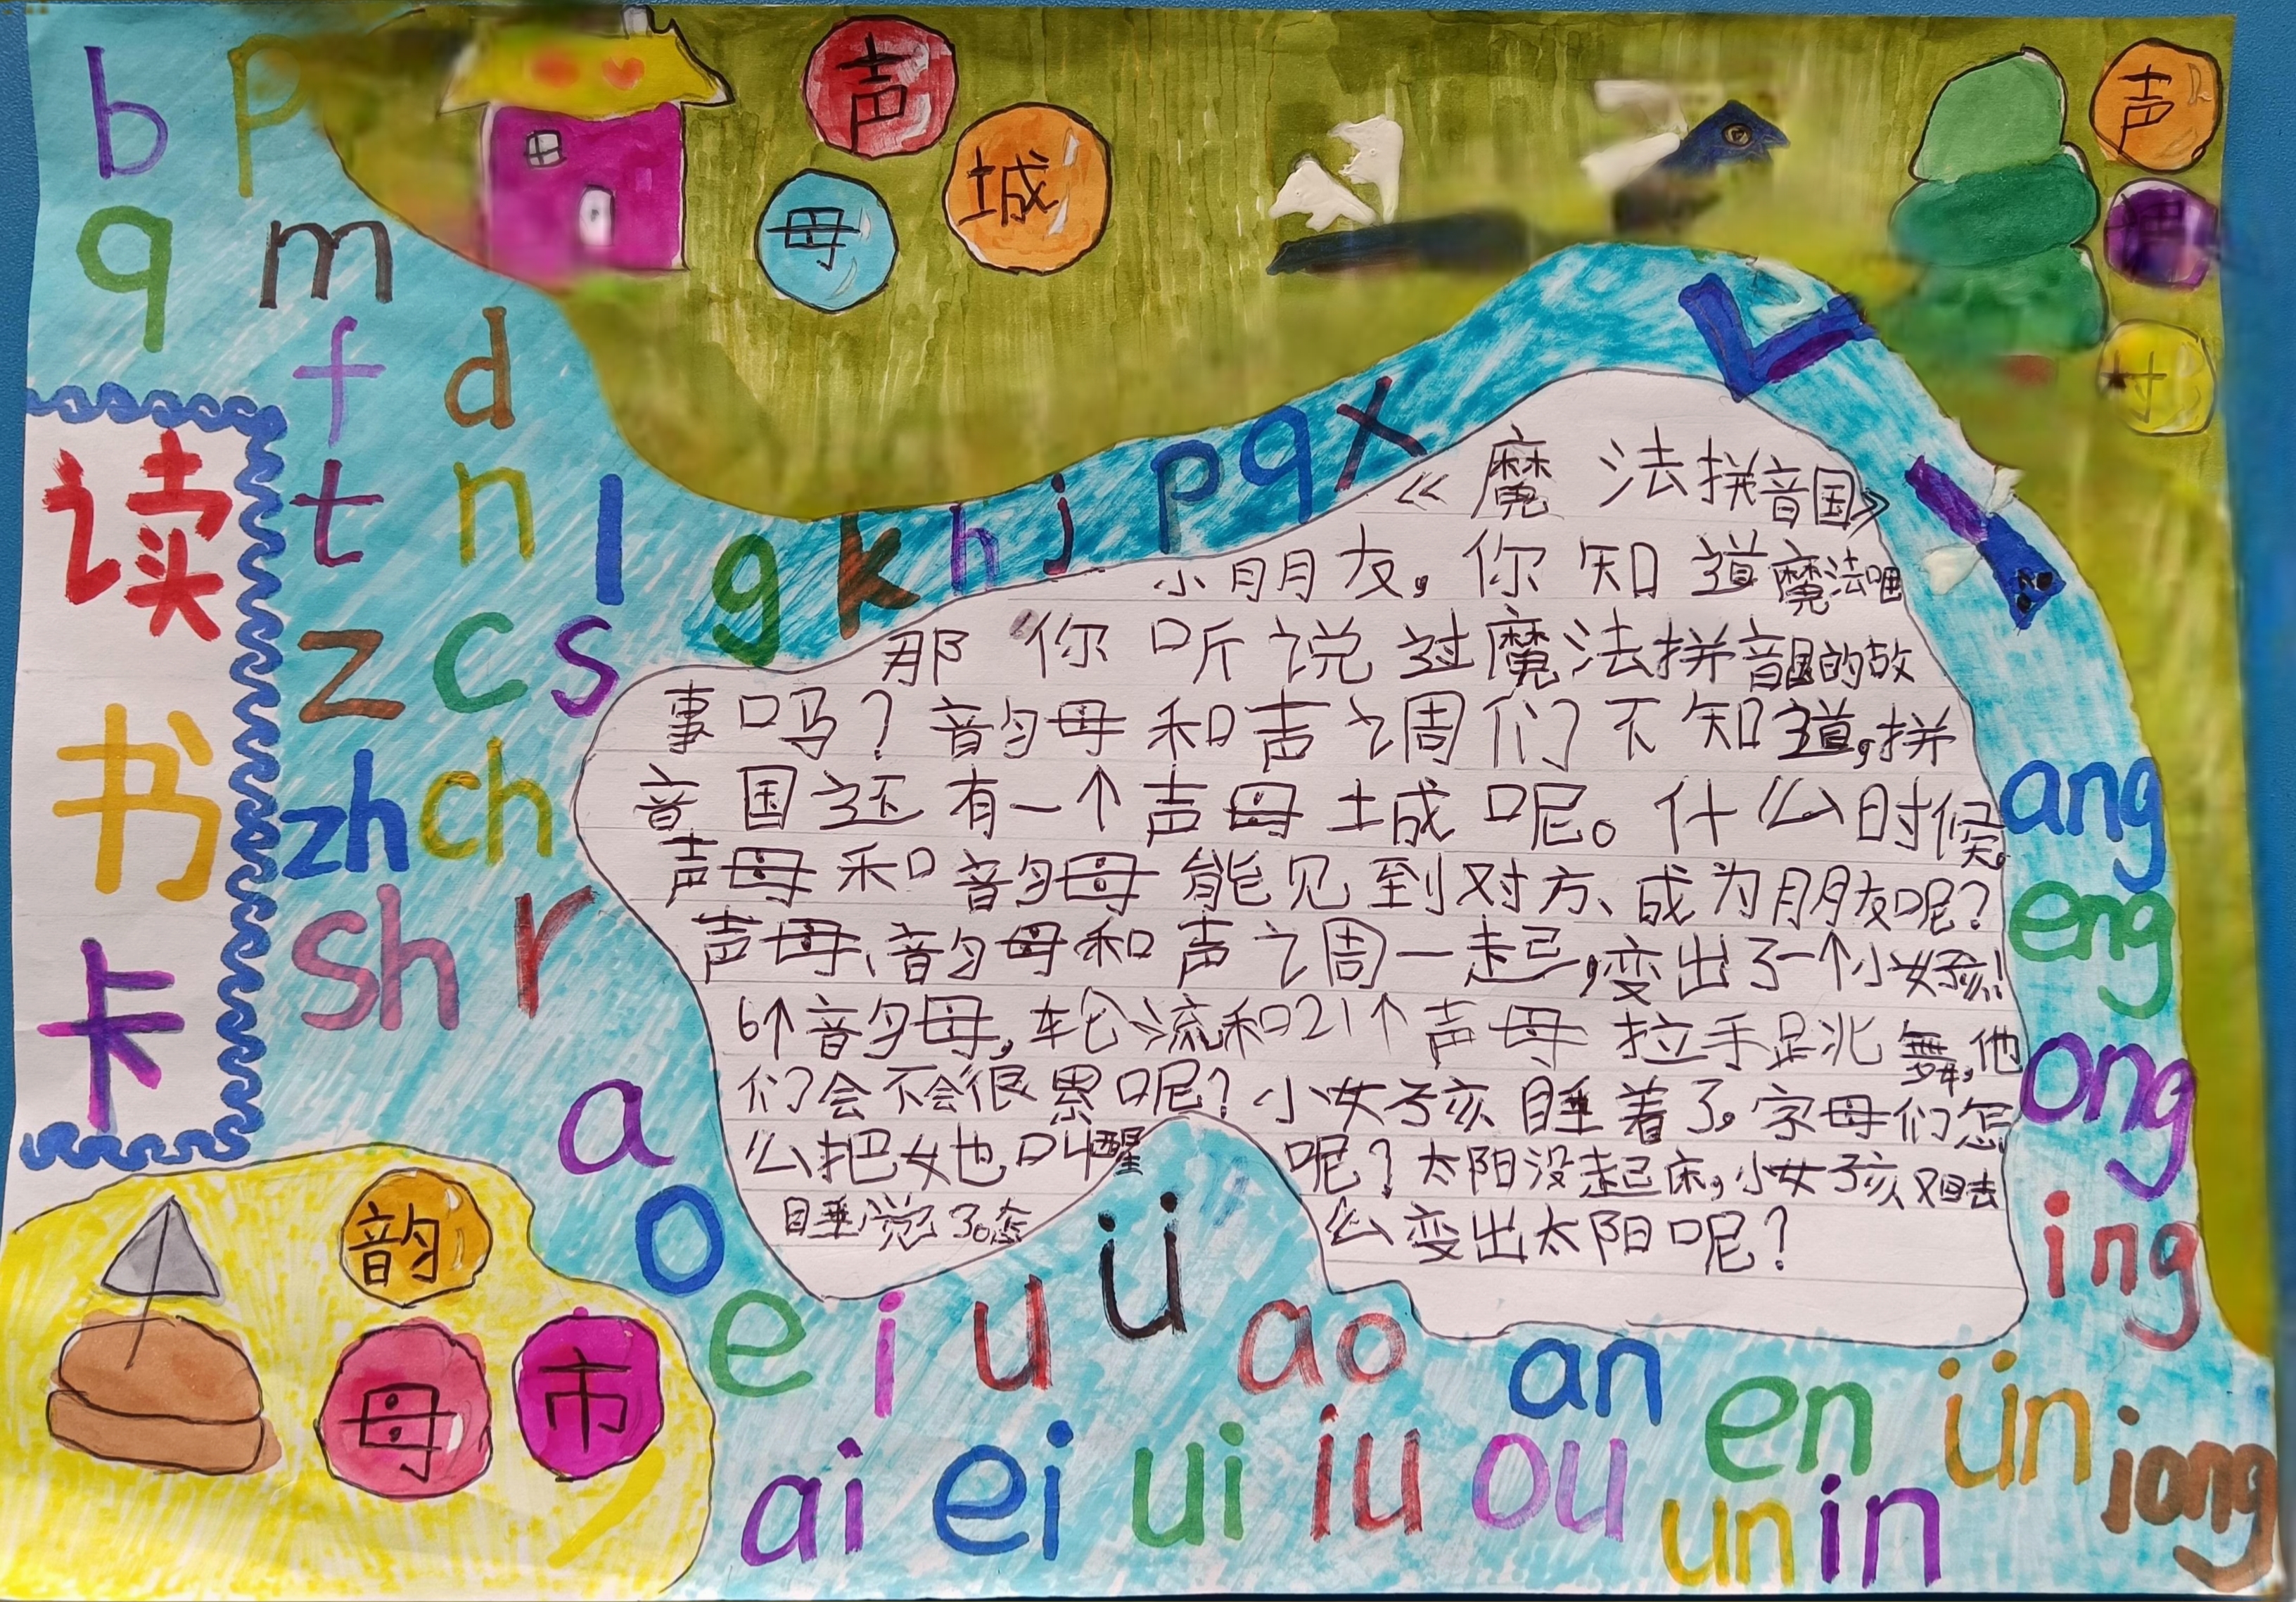 b p
q m
f d
t n l
z c s
zh ch
sh r
g k h j p q x
读
书
卡
声
母
城
声
调
村
《魔法拼音国》
小朋友,你知道魔法吧
那你听说过魔法拼音国的故
事吗?韵母和声调们不知道,拼
音国还有一个声母城呢。什么时候
声母和韵母能见到对方、成为朋友呢?
声母、韵母和声调一起,变出了一个小女孩!
6个韵母,轮流和21个声母拉手跳舞,他
们会不会很累呢?小女孩睡着了,字母们怎
么把她叫醒呢?太阳没起床,小女孩又回去
睡觉了。怎么变出太阳呢?
韵
母
市
a
o
e i u ü ao
an en ün iong
ai ei ui iu ou un in
ang
eng
ong
ing